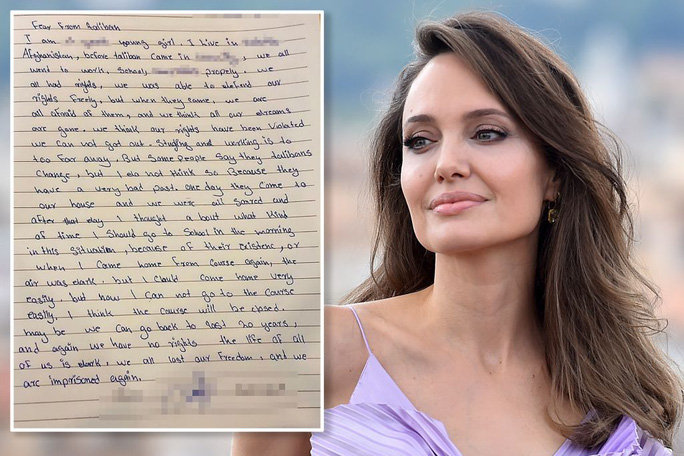 Fear From Taliban
I am young girl. I live in
Afghanistan, before taliban came in , we all
went to work, school, propely, we
all had rights, we was able to defend our
rights freely, but when they came, we are
all afraid of them, and we think all our dreams
are gone. we think our rights have been Violated
we can not get out. Studing and working is to
too Far away. But Some people Say they talibans
Change, but I do not think so Because they
have a very bad past. one day they Came to
our house and we were all scared and
after that day I thought a bout what kind
of time I Should go to School in the morning
in this situation, because of their existenc, or
when I Came home from Course again, the
air was dark. but I Could come home very
easily. but now I can not go to the Course
easily, I think the course will be closed.
may be we can go back to last 20 years,
and again we have no rights the life of all
of us is dark, we all lost our freedom, and we
are imprisoned again.